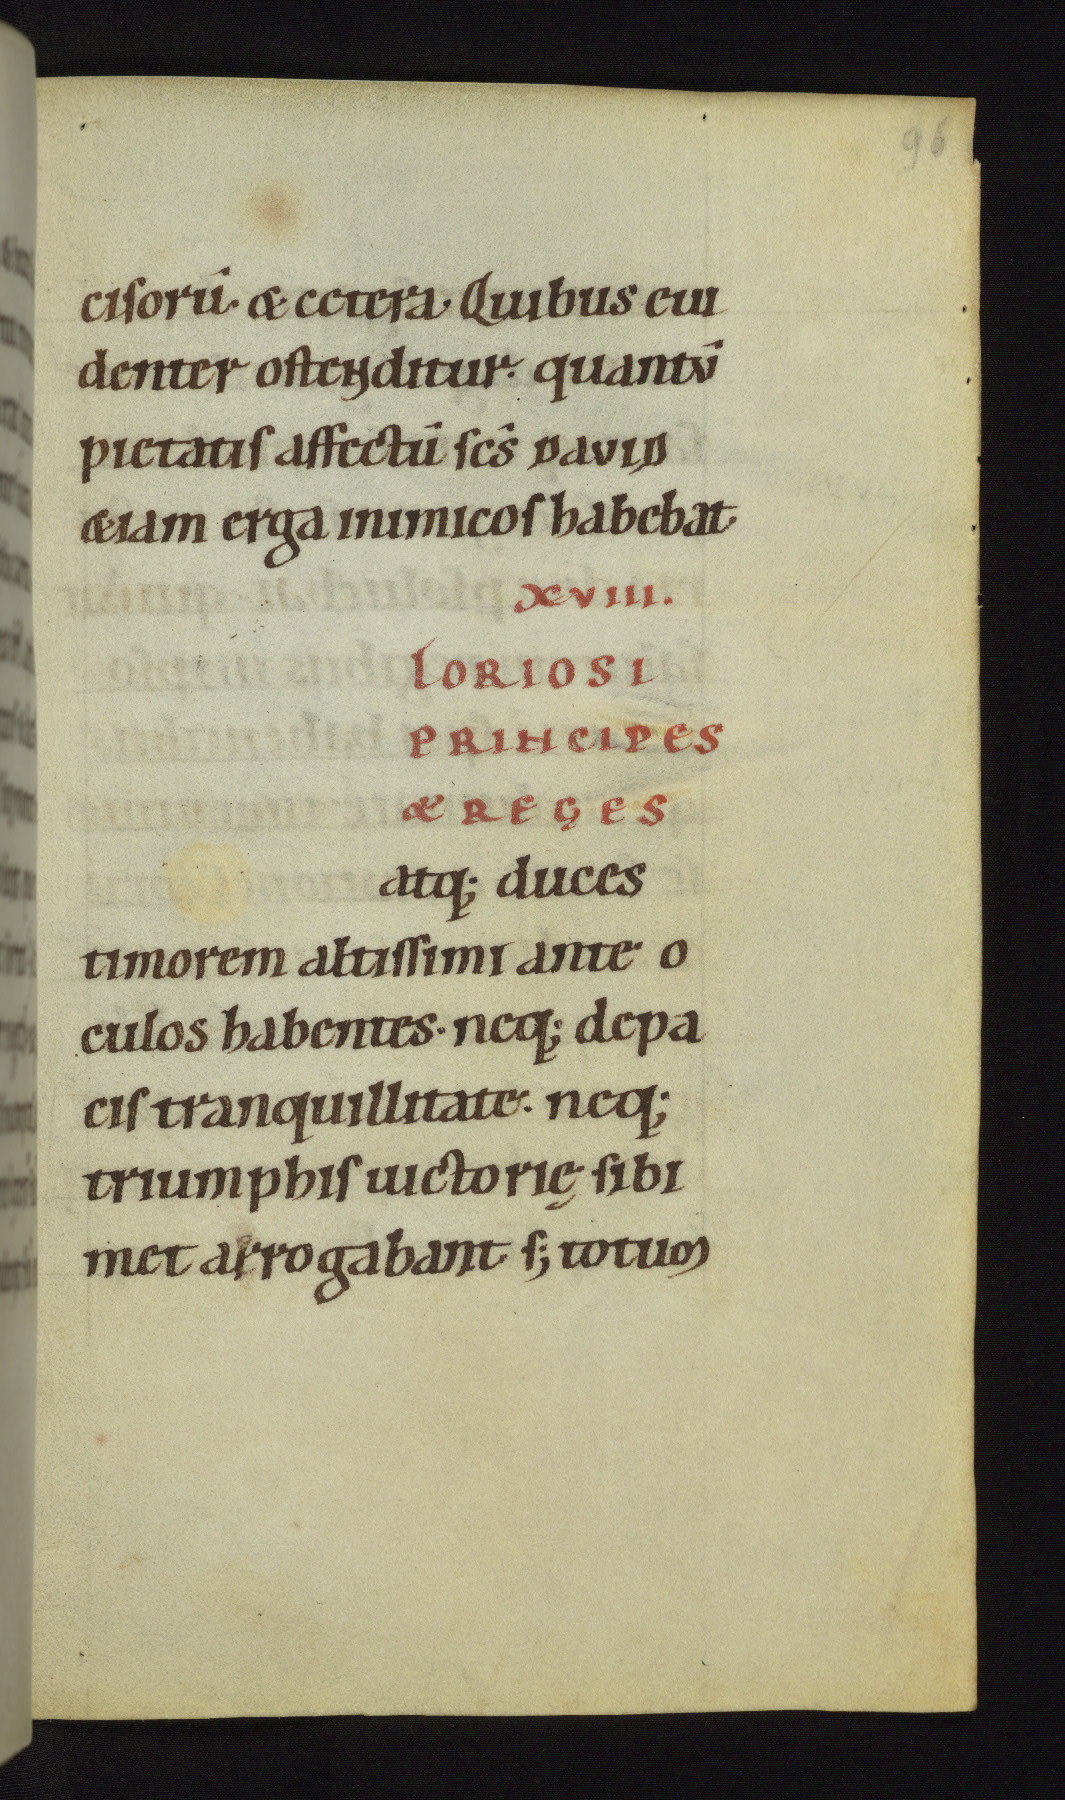 96
ciſorū· & cetera· Quibus eui
denter oſtenditur· quantū
pietatiſ affectū ſc̄s DAVID
&iam erga inimicoſ habebat
XVIII.
LORIOSI
PRINCIPES
& REGES
atq; duces
timorem altiſſimi ante o
culos habentes· neq; depa
ciſ tranquillitate· neq;
triumphiſ uictorię ſibi
met arrogabant ſ; totum